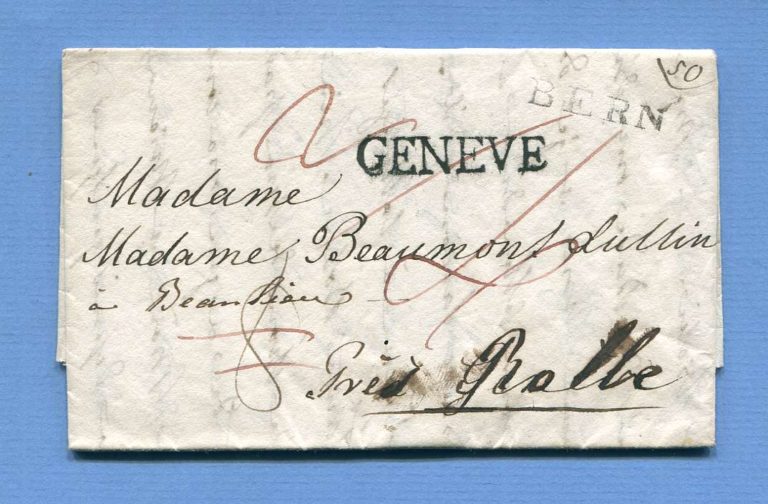 50
BERN
GENEVE
Madame
Madame Beaumont Lullin
à Beaulieu
8
Près Rolle